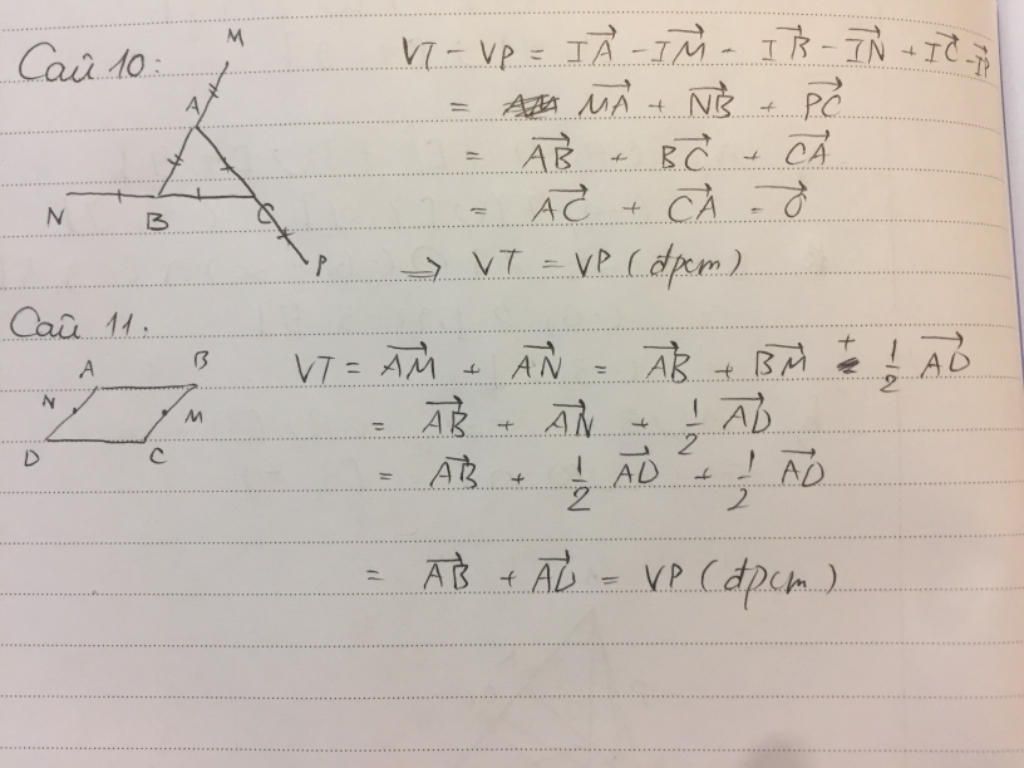 Câu 10:
M
A
N
B
C
P
VT - VP = IA⃗ - IM⃗ - IB⃗ - IN⃗ + IC⃗ - IP⃗
= MA⃗ + NB⃗ + PC⃗
= AB⃗ + BC⃗ + CA⃗
= AC⃗ + CA⃗ = 0⃗
⇒ VT = VP (đpcm)
Câu 11:
A
B
N
M
D
C
VT = AM⃗ + AN⃗ = AB⃗ + BM⃗ + 1/2 AD⃗
= AB⃗ + AN⃗ + 1/2 AD⃗
= AB⃗ + 1/2 AD⃗ + 1/2 AD⃗
= AB⃗ + AD⃗ = VP (đpcm)